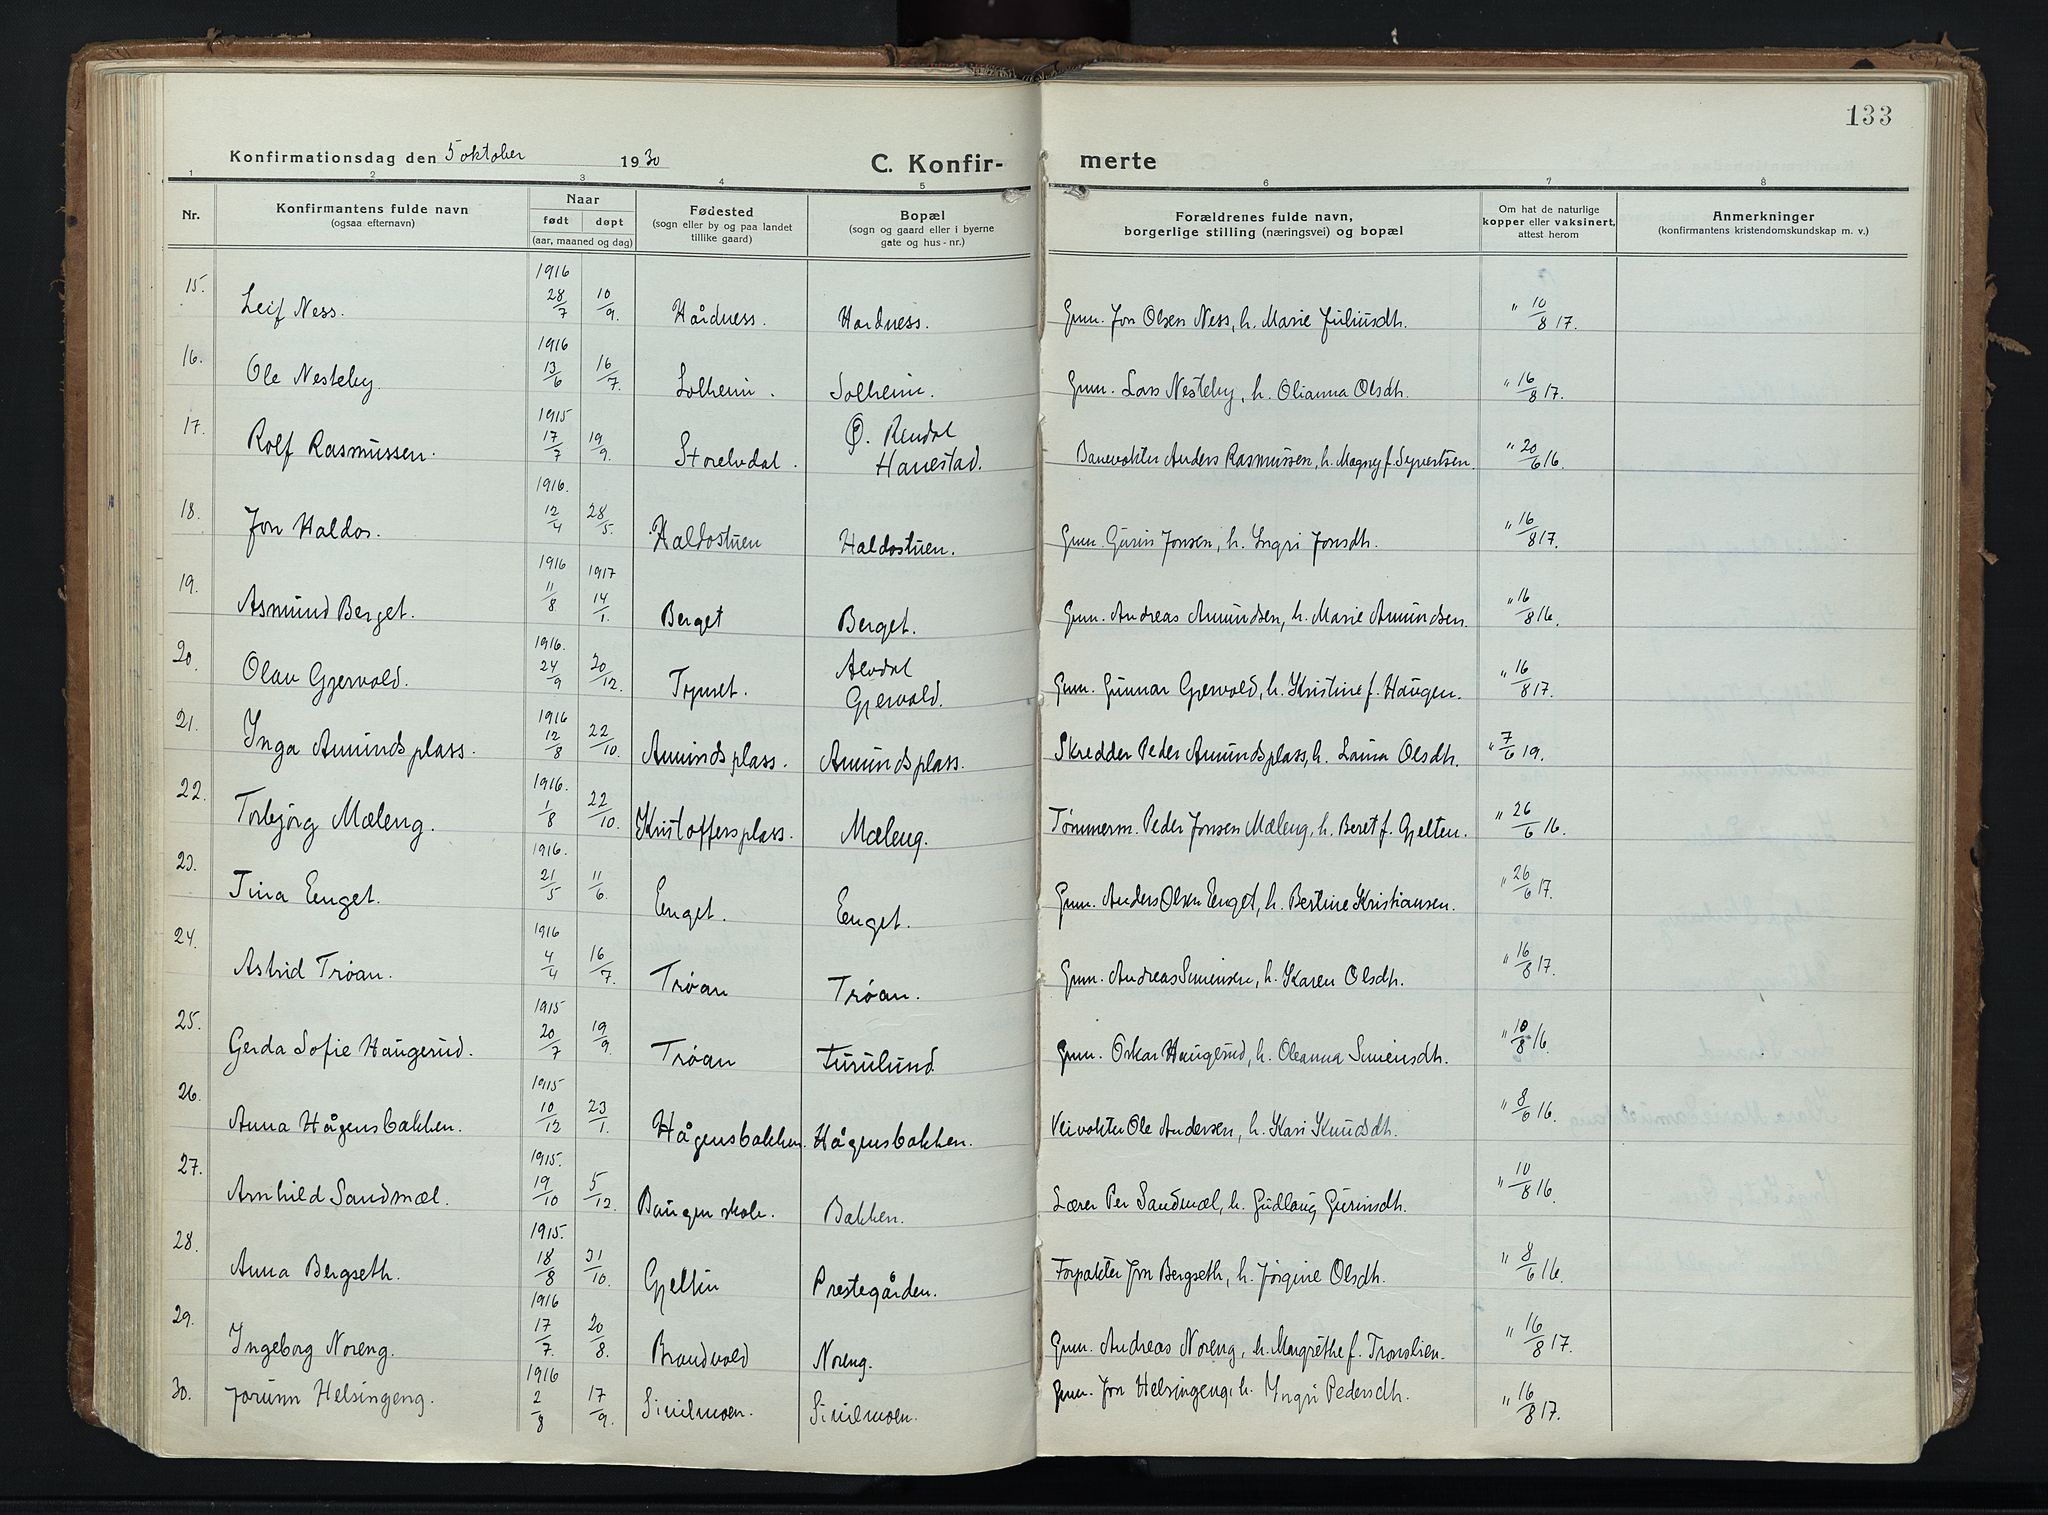 133
Konfirmationsdag den 5 oktober 1930 C. Konfir- merte
1 2 3 4 5 6 7 8
Nr. Konfirmantens fulde navn (ogsaa efternavn) Naar født døpt (aar, maaned og dag) Fødested (sogn eller by og paa landet tillike gaard) Bopæl (sogn og gaard eller i byerne gate og hus-nr.) Forældrenes fulde navn, borgerlige stilling (næringsvei) og bopæl Om hat de naturlige kopper eller vaksinert, attest herom Anmerkninger (konfirmantens kristendomskundskap m. v.)
1916
15. Leif Ness. 28/7 10/9. Hårdness. Hardness. Gmn. Jon Olsen Ness, h. Marie Juliusdh. " 10/8 17.
1916
16. Ole Nesteby 13/6 16/7. Solheim. Solheim. Gmn. Lars Nesteby, h. Olianna Olsdh. " 16/8 17.
1915
17. Rolf Rasmussen. 17/7 19/9. Storelvdal. Ø. Rendal Hanestad. Banevokter Anders Rasmussen, h. Magny f. Syvertsen. " 20/6 16.
1916.
18. Jon Haldos. 12/4 28/5. Haldostuen Haldostuen. Gmn. Gurin Jonsen, h. Yngri Jonsdh. " 16/8 17.
1916 1917
19. Asmund Berget. 11/8 14/1. Berget Berget. Gmn. Andreas Amundsen, h. Marie Amundsen. " 16/8 16.
1916.
20. Olav Gjervold. 24/9 20/12. Tynset. Alvdal Gjervold. Gmn. Gunnar Gjervold, h. Kristine f. Haugen. " 16/8 17.
1916
21. Ynga Amundsplass. 12/8 22/10. Amundsplass. Amundsplass. Skredder Peder Amundsplass, h. Laura Olsdh. " 7/6 19.
1916.
22. Torbjørg Mæleng. 1/8 22/10. Kristoffersplass. Mæleng. Tømmerm. Peder Jonsen Mæleng, h. Beret f. Gjelten. " 26/6 16.
1916.
23. Tina Eenget. 21/5 11/6. Eenget. Eenget. Gmn. Anders Olsen Eenget, h. Bertine Kristiansen. " 26/6 17.
1916
24. Astrid Trøan. 4/4 16/7. Trøan Trøan. Gmn. Andreas Simensen, h. Karen Olsdh. " 16/8 17.
1915
25. Gerda Sofie Haugerud. 20/7 19/9. Trøan Furulund Gmn. Oskar Haugerud, h. Oleanna Simensdh. " 10/8 16.
1915
26. Anna Hågensbakken. 10/12 23/1. Hågensbakken. Hågensbakken. Veivokter Ole Andersen, h. Kari Knudsdh. " 8/6 16.
1915.
27. Arnhild Sandmæl. 19/10 5/12. Baugen skole. Bakken. Lærer Per Sandmæl, h. Gudlaug Gurinsdh. " 10/8 16.
1915.
28. Anna Bergseth. 18/8 31/10. Gjelten Prestegården. Forpakter Jon Bergseth, h. Jørgine Olsdh. " 8/6 16.
1916
29. Yngeborg Noreng. 17/7 20/8. Brandvold Noreng. Gmn. Andreas Noreng, h. Margrethe f. Tronslien. " 16/8 17.
1916
30. Jorunn Helsingeng. 2/8 17/9. Sivilmoen. Sivilmoen. Gmn. Jon Helsingeng, h. Yngri Pedersdh. " 16/8 17.